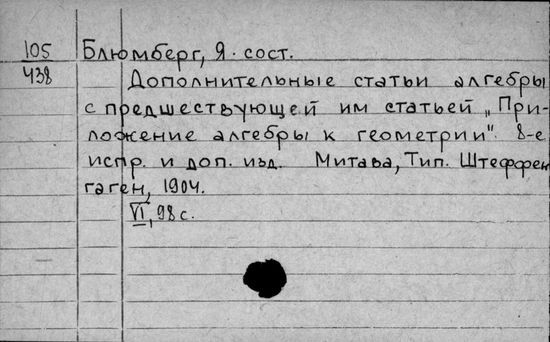 105 Блюмберг, Я. сост.
438 Дополнительные статьи алгебры
с предшествующей им статьей „При-
ложение алгебры к геометрии". 8-е
испр. и доп. изд. Митава, Тип. Штеффен-
гаген, 1904.
VI, 98 с.